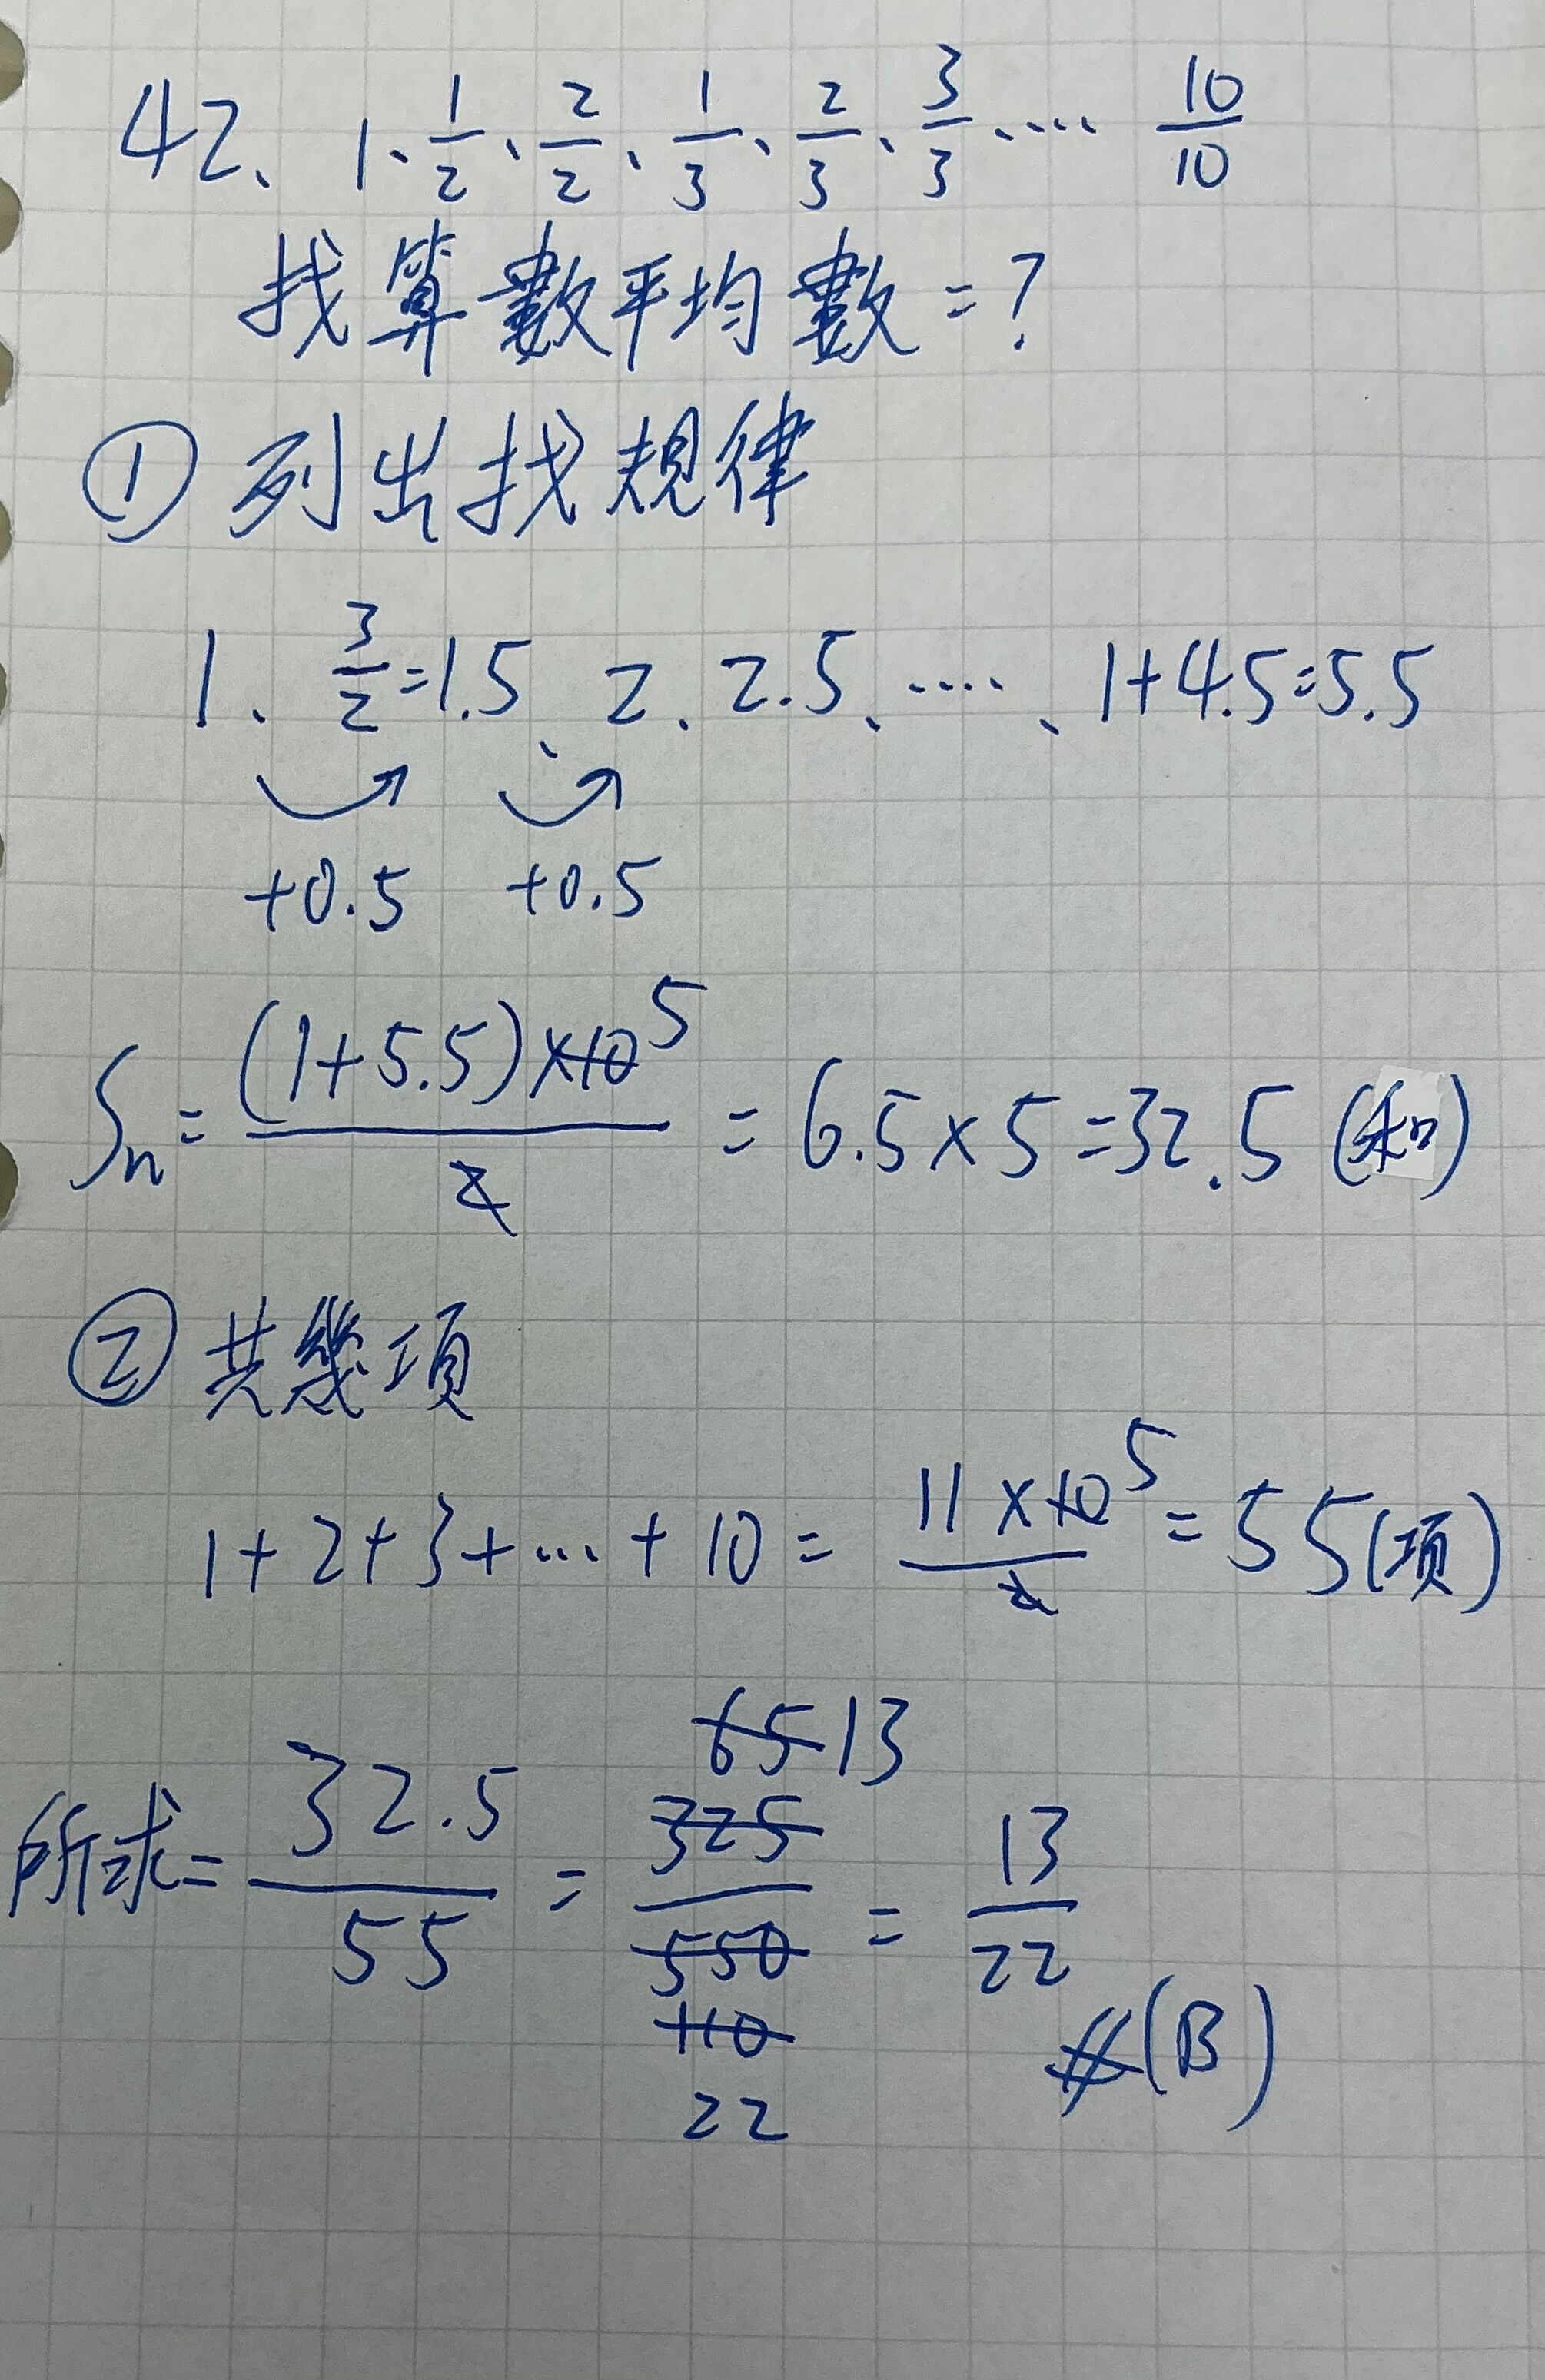 42、1、1/2、2/2、1/3、2/3、3/3、.... 10/10
找算數平均數=?
① 列出找規律
1、3/2=1.5、2、2.5、....、1+4.5=5.5
+0.5 +0.5
Sn=(1+5.5)×10 5/2=6.5×5=32.5(和)
② 共幾項
1+2+3+...+10=11×10 5/2=55(項)
65 13
所求=32.5/55=325/550=13/22
110
22
#(B)